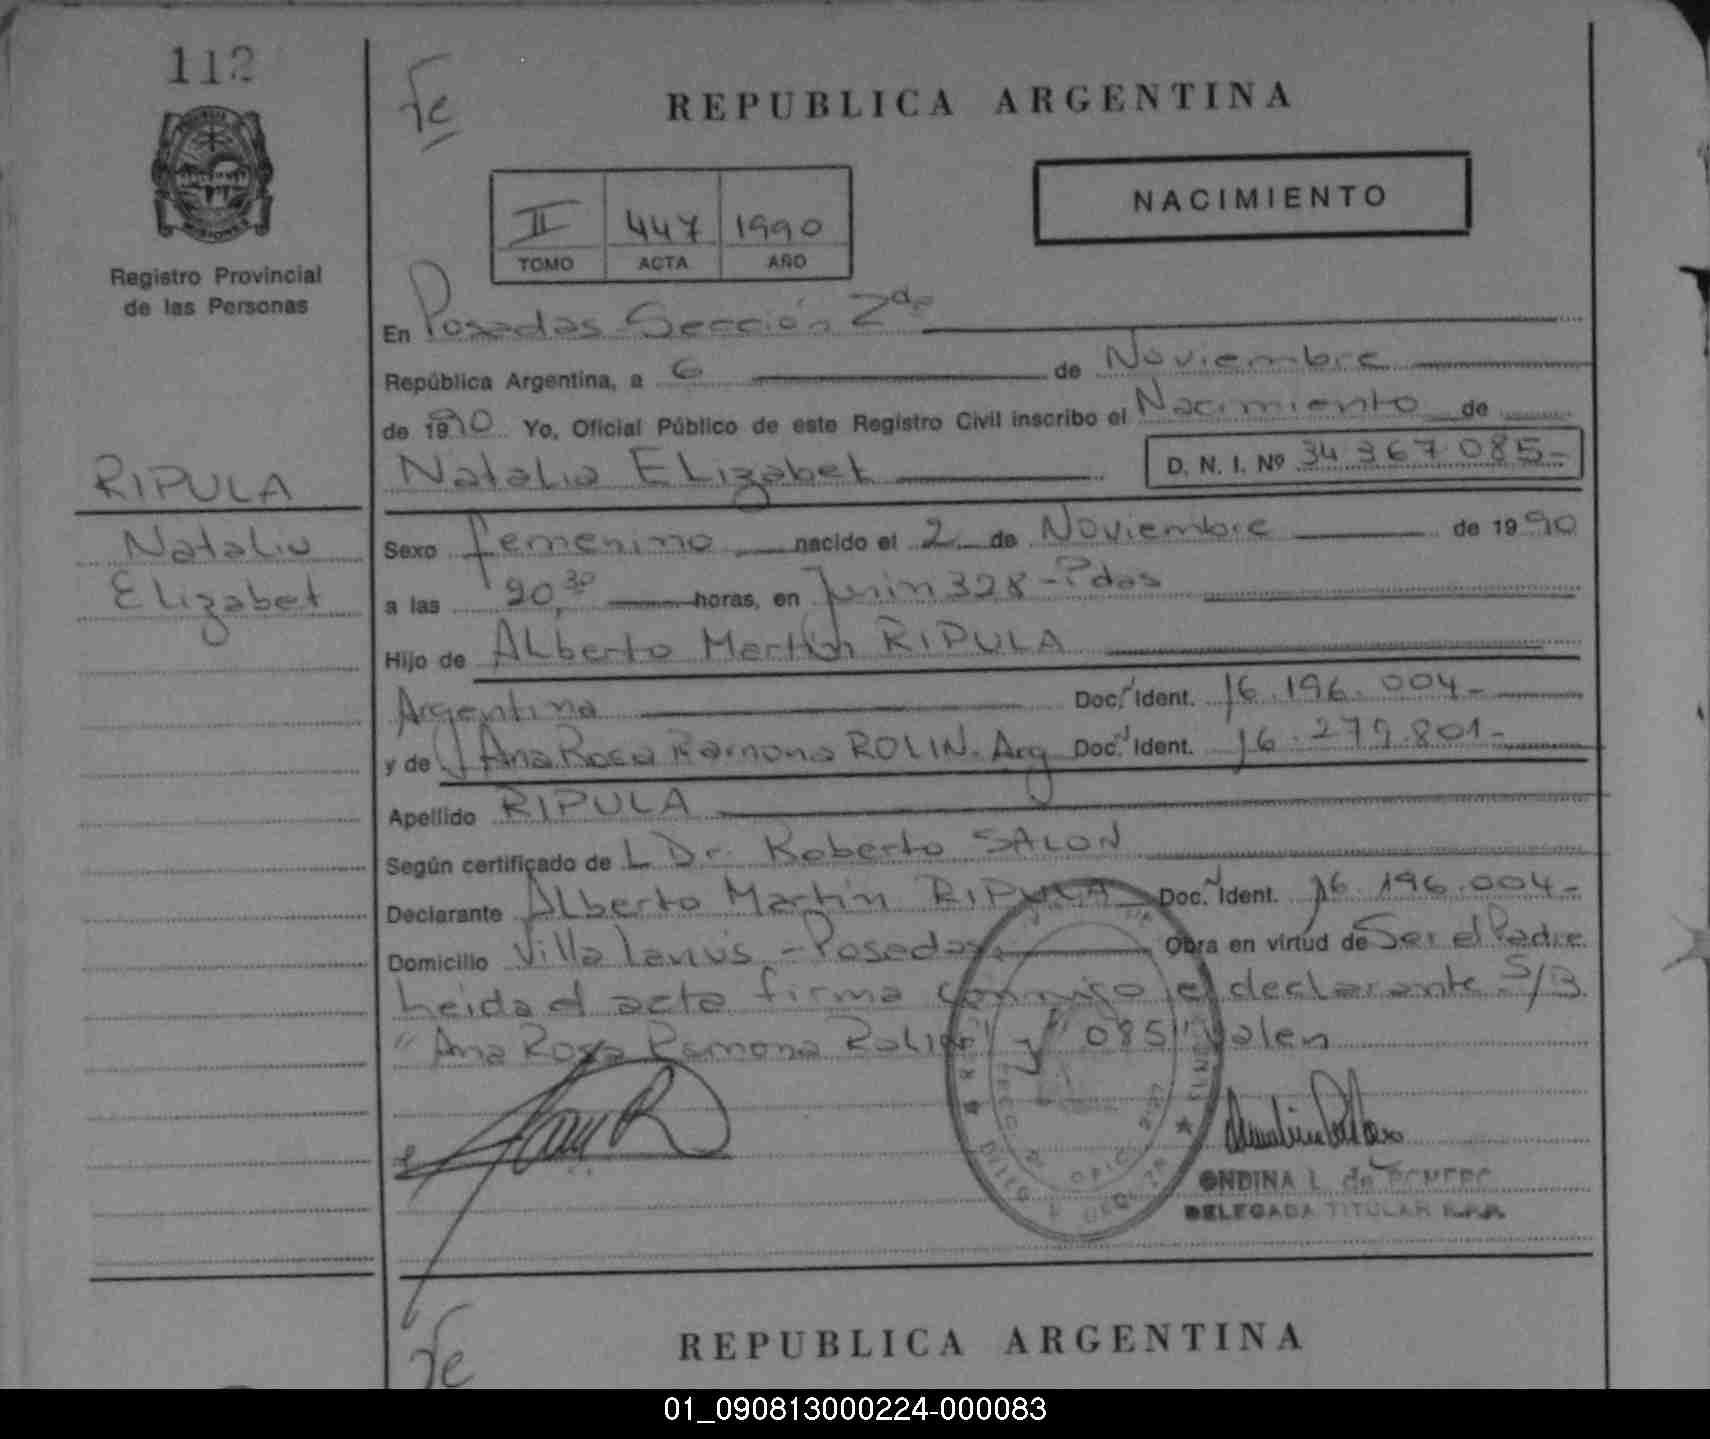 112
Fe
REPUBLICA ARGENTINA
NACIMIENTO
II 447 1990
TOMO ACTA AÑO
Registro Provincial
de las Personas
En Posadas Sección 2da
República Argentina, a 6 de Noviembre
de 1990 Yo, Oficial Público de este Registro Civil inscribo el Nacimiento de
Natalia ELizabet D. N. I. Nº 34 367 085-
RIPULA
Natalia
Elizabet
Sexo femenino nacido el 2 de Noviembre de 1990
a las 20,30 horas, en Junin 328 - Pdas
Hijo de ALberto Martin RIPULA
Argentina Doc. Ident. 16.196.004-
y de Ana Rosa Ramona ROLIN. Arg Doc. Ident. 16.279.801-
Apellido RIPULA
Según certificado de L Dr. Roberto SALON
Declarante ALberto Martin RIPULA Doc. Ident. 16.196.004-
Domicilio Villa Lanus - Posadas Obra en virtud de Ser el Padre
Leida el acta firma conmigo el declarante. S/B
"Ana Rosa Ramona Rolin" y "085" Valen
ONDINA L. de
DELEGADA TITULAR R.P.P.
Fe
REPUBLICA ARGENTINA
01_090813000224-000083